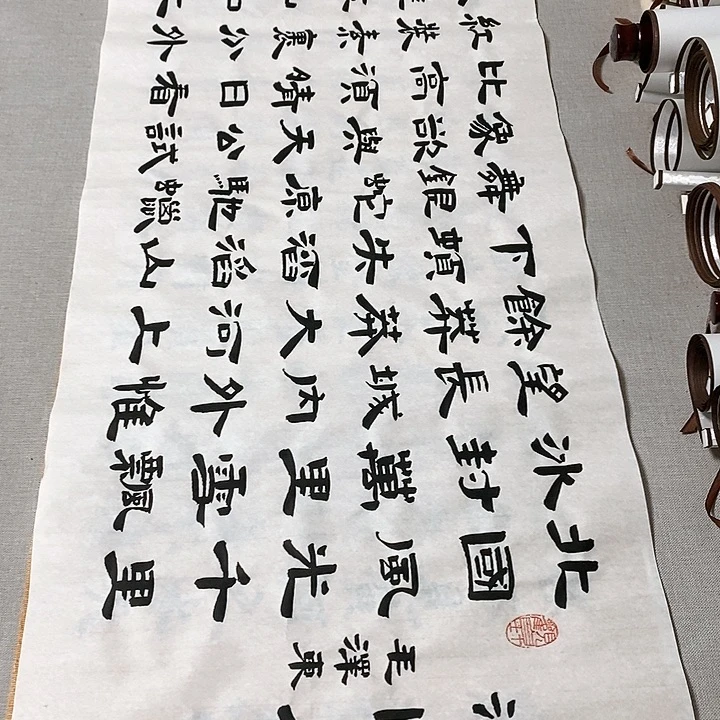 毛澤東
北國風光千里
冰封萬里雪飄
望長城內外惟
餘莽莽大河上
下頓失滔滔山
舞銀蛇原馳蠟
象欲與天公試
比高須晴日看
紅裝素裹分外